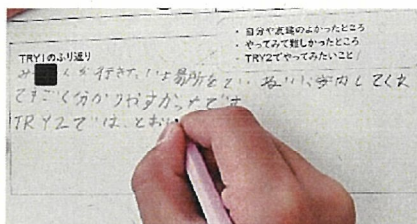 ・自分や友達のよかったところ
・やってみて難しかったところ
・TRY2でやってみたいこと
TRY1のふり返り
み くんが行きたい場所をてい ねいに案内してくれ
てすごく分かりやすかったです
TRY2では、とおい